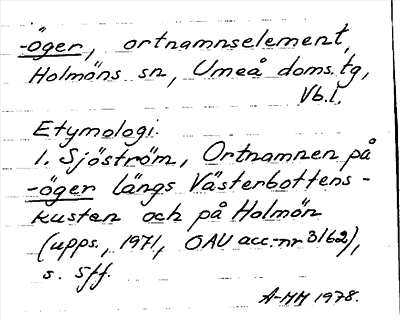 -öger, ortnamnselement,
Holmöns sn, Umeå doms.tg,
Vb.l.
Etymologi.
I. Sjöström, Ortnamnen på
-öger längs Västerbottens-
kusten och på Holmön
(upps., 1971, OAU acc.-nr 3162),
s. 5ff.
A-HH 1978.